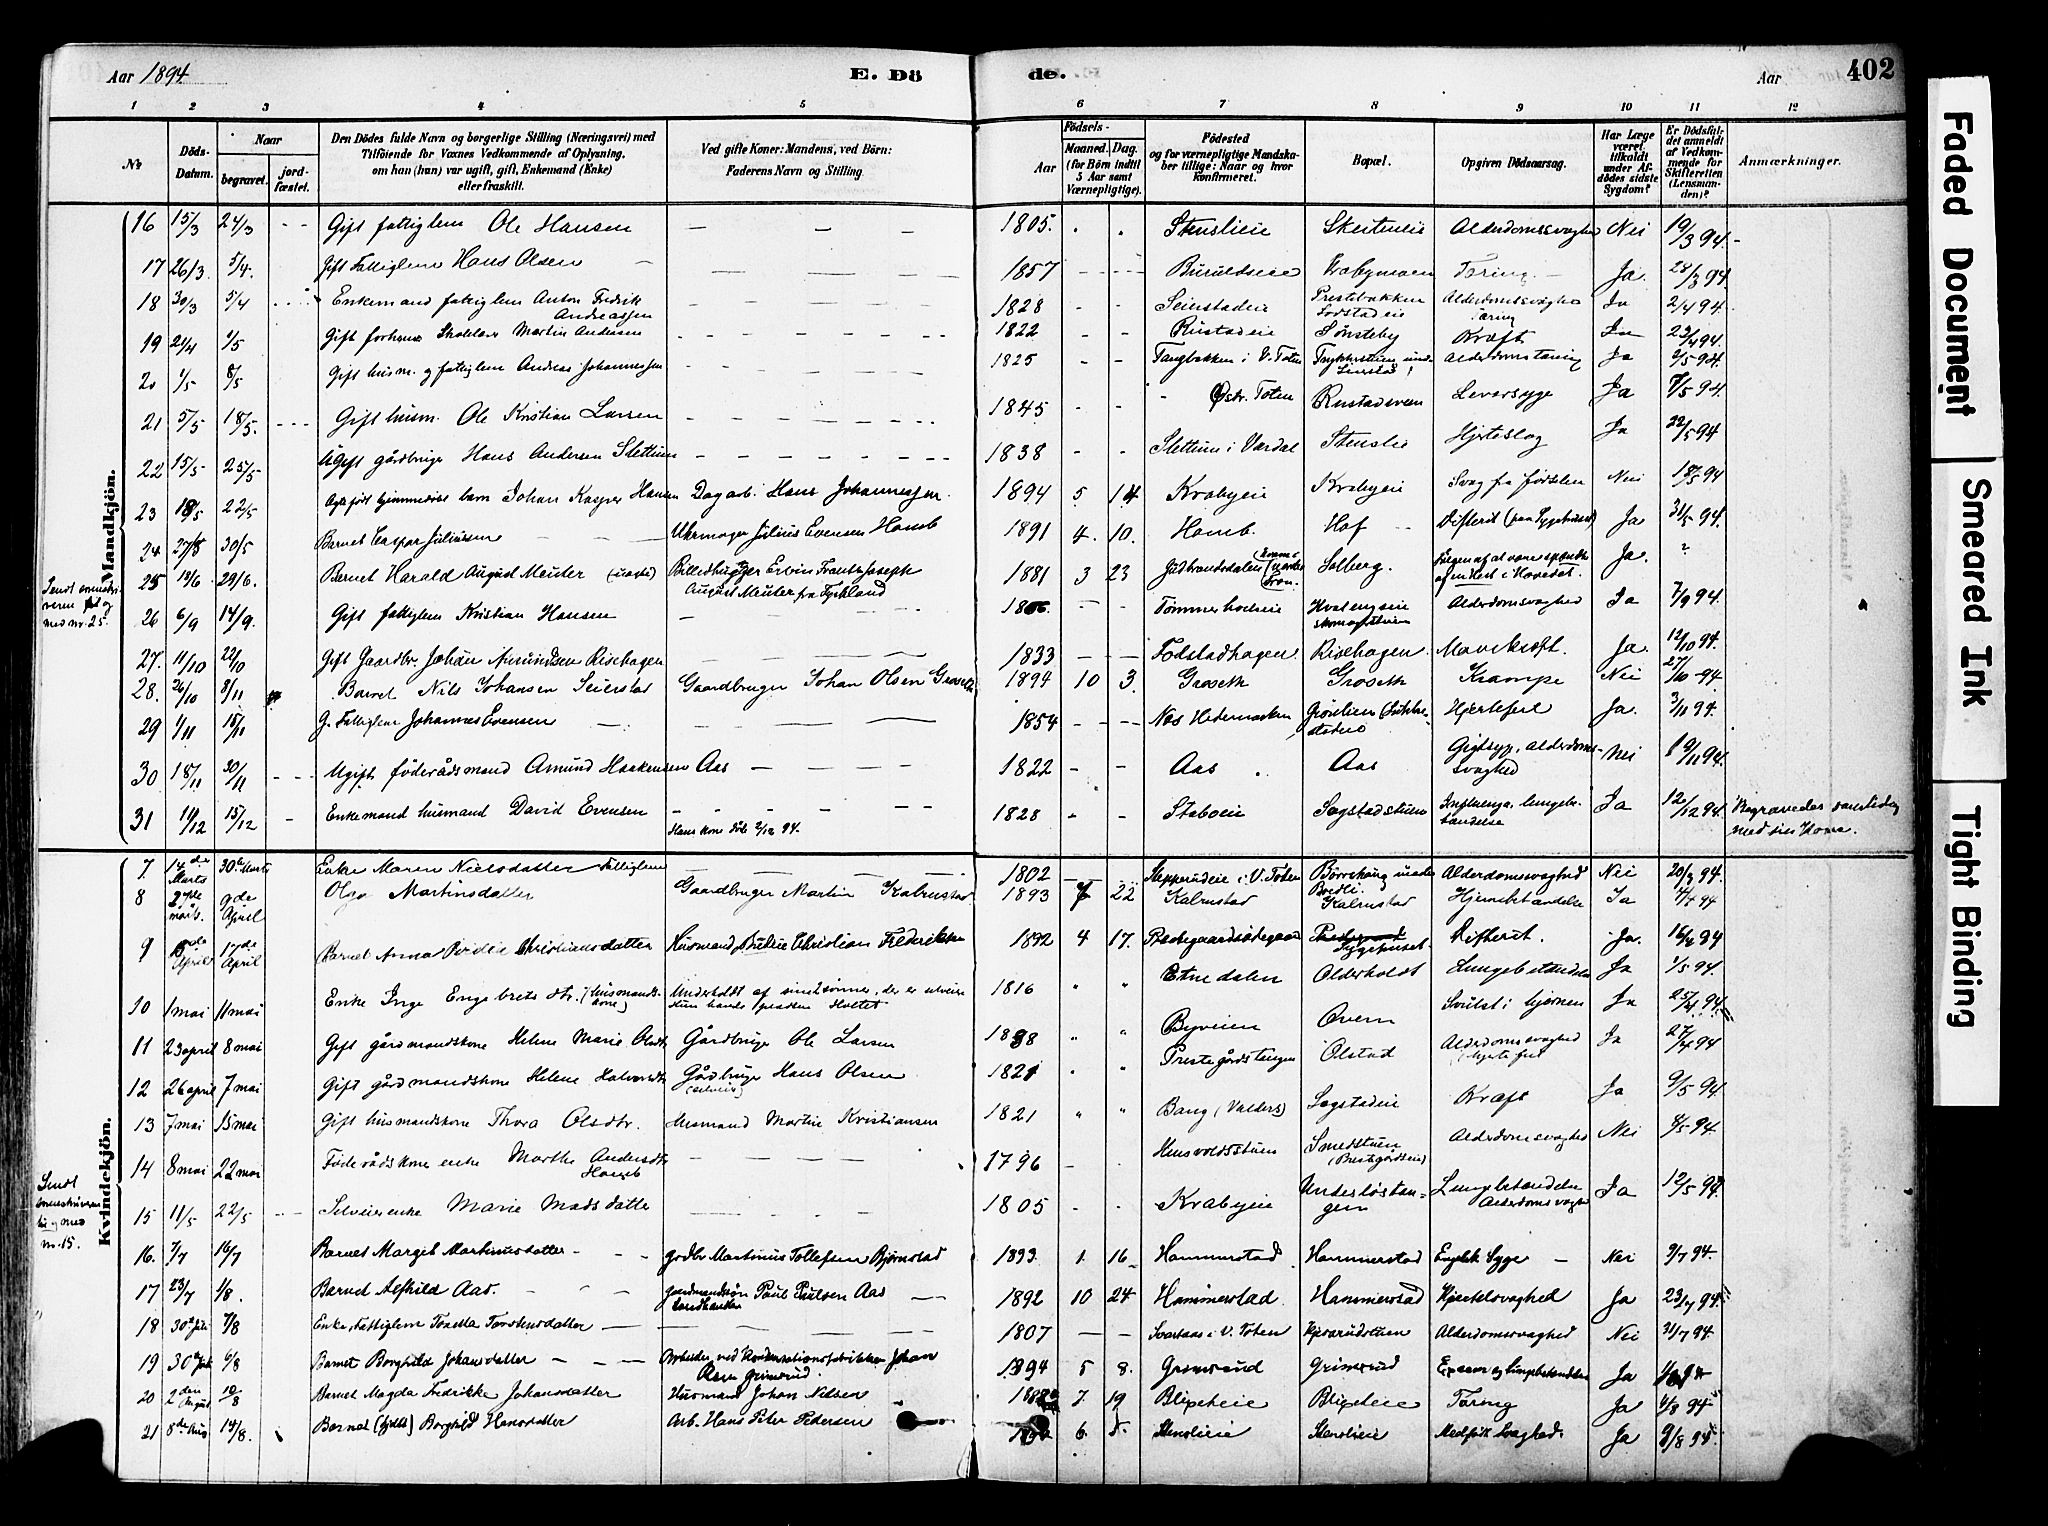 Aar 1894
E. Dö
de.
Aar
402
1 2 3 4 5 6 7 8 9 10 11 12
No
Døds-Datum.
Naar
begravet.
jord-fæstet.
Den Dödes fulde Navn og borgerlige Stilling (Næringsvei) med
Tilföiende for Voxnes Vedkommende af Oplysning,
om han (hun) var ugift, gift, Enkemand (Enke)
eller fraskilt.
Ved gifte Koner: Mandens, ved Börn:
Faderens Navn og Stilling.
Födsels-
Aar
Maaned. Dag.
(for Börn indtil
5 Aar samt
Værnepligtige).
Födested
og for værnepligtige Mandska-
ber tillige: Naar og hvor
konfirmeret.
Bopæl.
Opgiven Dödsaarsag.
Har Læge
været
tilkaldt
under Af-
dödes sidste
Sygdom?
Er Dödsfal-
det anmeldt
af Vedkom-
mende for
Skifteretten
(Lensman-
den)?
Anmærkninger.
Mandkjön.
16 15/3 24/3 - - Gift fattiglem Ole Hansen — — — 1805. Stenslieie Alderdomssvaghed Nei 19/3 94.
17 26/3 5/4. Gift Fattiglem Hans Olsen 1857 Tæring Ja. 28/3 94.
18 30/3 5/4 Enkemand fattiglem Anton Fredrik Andreassen 1828 Seierstadeie Prestebakken Alderdomssvaghed Tæring Ja 2/4 94.
19 21/4 1/5 Gift Martin Andersen 1822 Rustadeie Sønsteby Kræft Ja 23/4 94.
20 1/5 8/5 Gift husm. og fattiglem Andreas Johannessen 1825 Tangbakken i V. Toten Alderdom tæring Ja 2/5 94.
21 5/5 18/5. Gift husm. Ole Kristian Larsen 1845 Østr. Toten Rustadsveen Leversyge Ja 7/5 94
22 15/5 25/5 Ugift gårdbruger Hans Andersen Slettum 1838 Slettum i Vardal Stenslie Hjerteslag Ja 22/5 94
23 18/5 22/5 hjemmedøbt barn Johan Kasper Hansen Dagarb. Hans Johannessen 1894 5 14 Krabyeie Krabyeie Svag fra fødselen Nei 18/5 94
24 27/5 30/5 Barnet Caspar Juliussen Uhrmager Julius Evensen Homb 1891 4. 10. Homb. Hof Difterit (paa Sygehuset) Ja 31/5 94.
25 19/6 29/6. Barnet Harald August Meuter Billedhugger Ervin Frantz Joseph August Meuter fra Tyskland 1881 3 23 Gudbrandsdalen Solberg. Følgen af at være sparket af en Hest i Hovedet. Ja. ?
26 6/9 14/9. Gift fattiglem Kristian Hansen Tømmerholeie Alderdomsvaghed Ja 7/9 94.
27. 11/10 22/10 Gift Gaardbr. Johan Amundsen Risehagen 1833 Fodstadhagen Risehagen. Mavekræft. Ja. 12/10 94.
28. 26/10 8/11 Barnet Nils Johansen Seierstad Gaardbruger Johan Olsen Groseth 1894 10 3. Groseth Groseth Krampe Nei 27/10 94
29 1/11 15/11 G. Fattiglem Johannes Evensen 1854 Næs Hedemarken Hjertefeil Ja. 3/11 94.
30 18/11 30/11 Ugift føderådsmand Amund Haakensen Aas 1822 Aas Aas Gigtsyg, alderdoms-svaghed Nei 19/11 94.
31 11/12 15/12 Enkemand husmand David Evensen Hans kone døde 2/12 94. 1828 Steboeie Sogstadstuen Influenza, lungebetændelse Ja 12/12 94. Begravedes samtidig med sin Kone.
med nr. 25.
Kvindekjön.
7. 14de Marts 30te Marts Enke Maren Nielsdatter Fattiglem 1802 i V. Toten Alderdomsvaghed Nei 20/3 94.
8 27de Marts. 9de April Olga Martinsdatter Gaardbruger Martin Kalrustad 1893 7 22 Kalrustad Kalrustad Hjernebetændelse Ja 4/4 94
9 April 17de April Barnet Anna Christiansdatter Husmand Christian Frederiksen 1892 4 17. Sygehuset. Difterit. Ja. 16/4 94
10 1 mai 11 mai Enke Inge Engebretsdtr. (husmandskone) Underholdt af sine sønner 1816 Etnedalen Olderholdt Lungebetændelse Ja 1/5 94.
11 23 april 8 mai Gift gårdmandskone Helene Marie Olsdtr Gårdbruger Ole Larsen Byveien Overn Svulst i hjernen Ja 25/4 94.
12 26 april 7 mai Gift gårdmandskone Helene Halvorsdtr Gårdbruger Hans Olsen 1821 Prestegårdstangen Olstad Alderdomssvaghed Hjertefeil Ja 27/4 94
13 7 mai 15 mai Gift husmandskone Thora Olsdtr. Husmand Martin Kristiansen 1821 Bang (Valders) Sogstadeie Kræft Ja 9/5 94.
14 8 mai 22 mai Føderådskone enke Marthe Andersdtr Homb 1796 Hensvoldsstuen Smedstuen (Prestgårdseie) Alderdomssvaghed Nei 9/5 94.
15 11/5 22/5 Selveierenke Marie Madsdatter 1805 Krabyeie Lungebetændelse Alderdomssvaghed Ja 12/5 94.
16. 7/7 16/7 Barnet Margit Martinusdatter gårdbr Martinus Tollefsen Bjørnstad 1893. 1. 16 Hammerstad Hammerstad Engelsk Syge Nei 9/7 94.
17 23/7 1/8. Barnet Alfhild Aas. Gaardmandssøn Landhandler Paul Paulsen Aas 1892 10 24 Hammerstad. Hammerstad Hjertesvaghed Ja 23/7 94.
18 30te Juli 7/8 Enke, Fattiglem Torstensdatter 1807 i V. Toten Alderdomssvaghed Nei 31/7 94.
19 30te Juli 6/8 Barnet Borghild Johansdatter Arbeider ved Kondensationsfabrikken Johan Olsen Grimsrud. 1894 5 8. Grimsrud Grimsrud Lungebetændelse Ja
20 2den August 10/8 Barnet Magda Fredrikke Johansdatter Husmand Johan Nilsen 7. 19 Tæring Ja 4/8 94
21 8de Aug 14/8. Barnet Borghild Hansdatter Arb. Hans Peter Pedersen 6. 5. Stenslieie Stenslieie Medfødt Svaghed. Ja 9/8 94
Sendt
og med
nr. 15.
Faded Document
Smeared Ink
Tight Binding